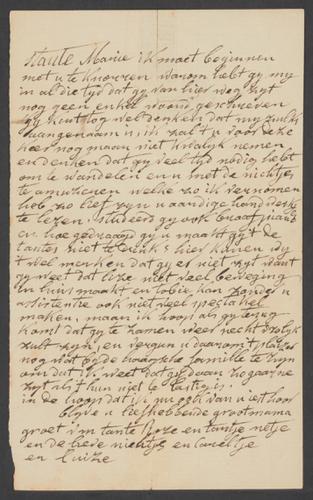 Maine ik moet beginnen
met u te knorren warom hebt gy my
in al die tyd dat gy van hier weg zyt
nog geen enkel woord geschreven
gy kunt nog wel denken dat my zulk
aangenaam is ik zal t u voor deze
keer nog maar niet kwalyk nemen
en denken dat gy veel tyd nodig hebt
om te wandelen en u met de nichtjes
te amuseren welke zo ik vernomen
heb zo lief zyn u aardige hondd
te lezen. studeerd gy ook braaf piano
en hoe gedraagd gy u maakt gy t de
tantes niet te druk hier kunen wy
t wel merken dat gy er niet zyt want
gy weet dat lize niet veel beweging
in huis maakt en kobie kan zonder u
assistentie ook niet veel spectakel
maken, maar ik hoop als gy terug
komt dat gy te zamen weer recht vrolyk
zult zyn, en vergun u daarom t plaizier
nog wat by de familie te zyn
om dat ik weet dat gy daar zo gaarne
zyt als t hun niet te lastig is.
in de hoop dat ik nu ook van u iets hoor
blyve u liefhebbende grootmama
groet v m tante en tantje netje
en de lieve nichtjes en careltje
en luize